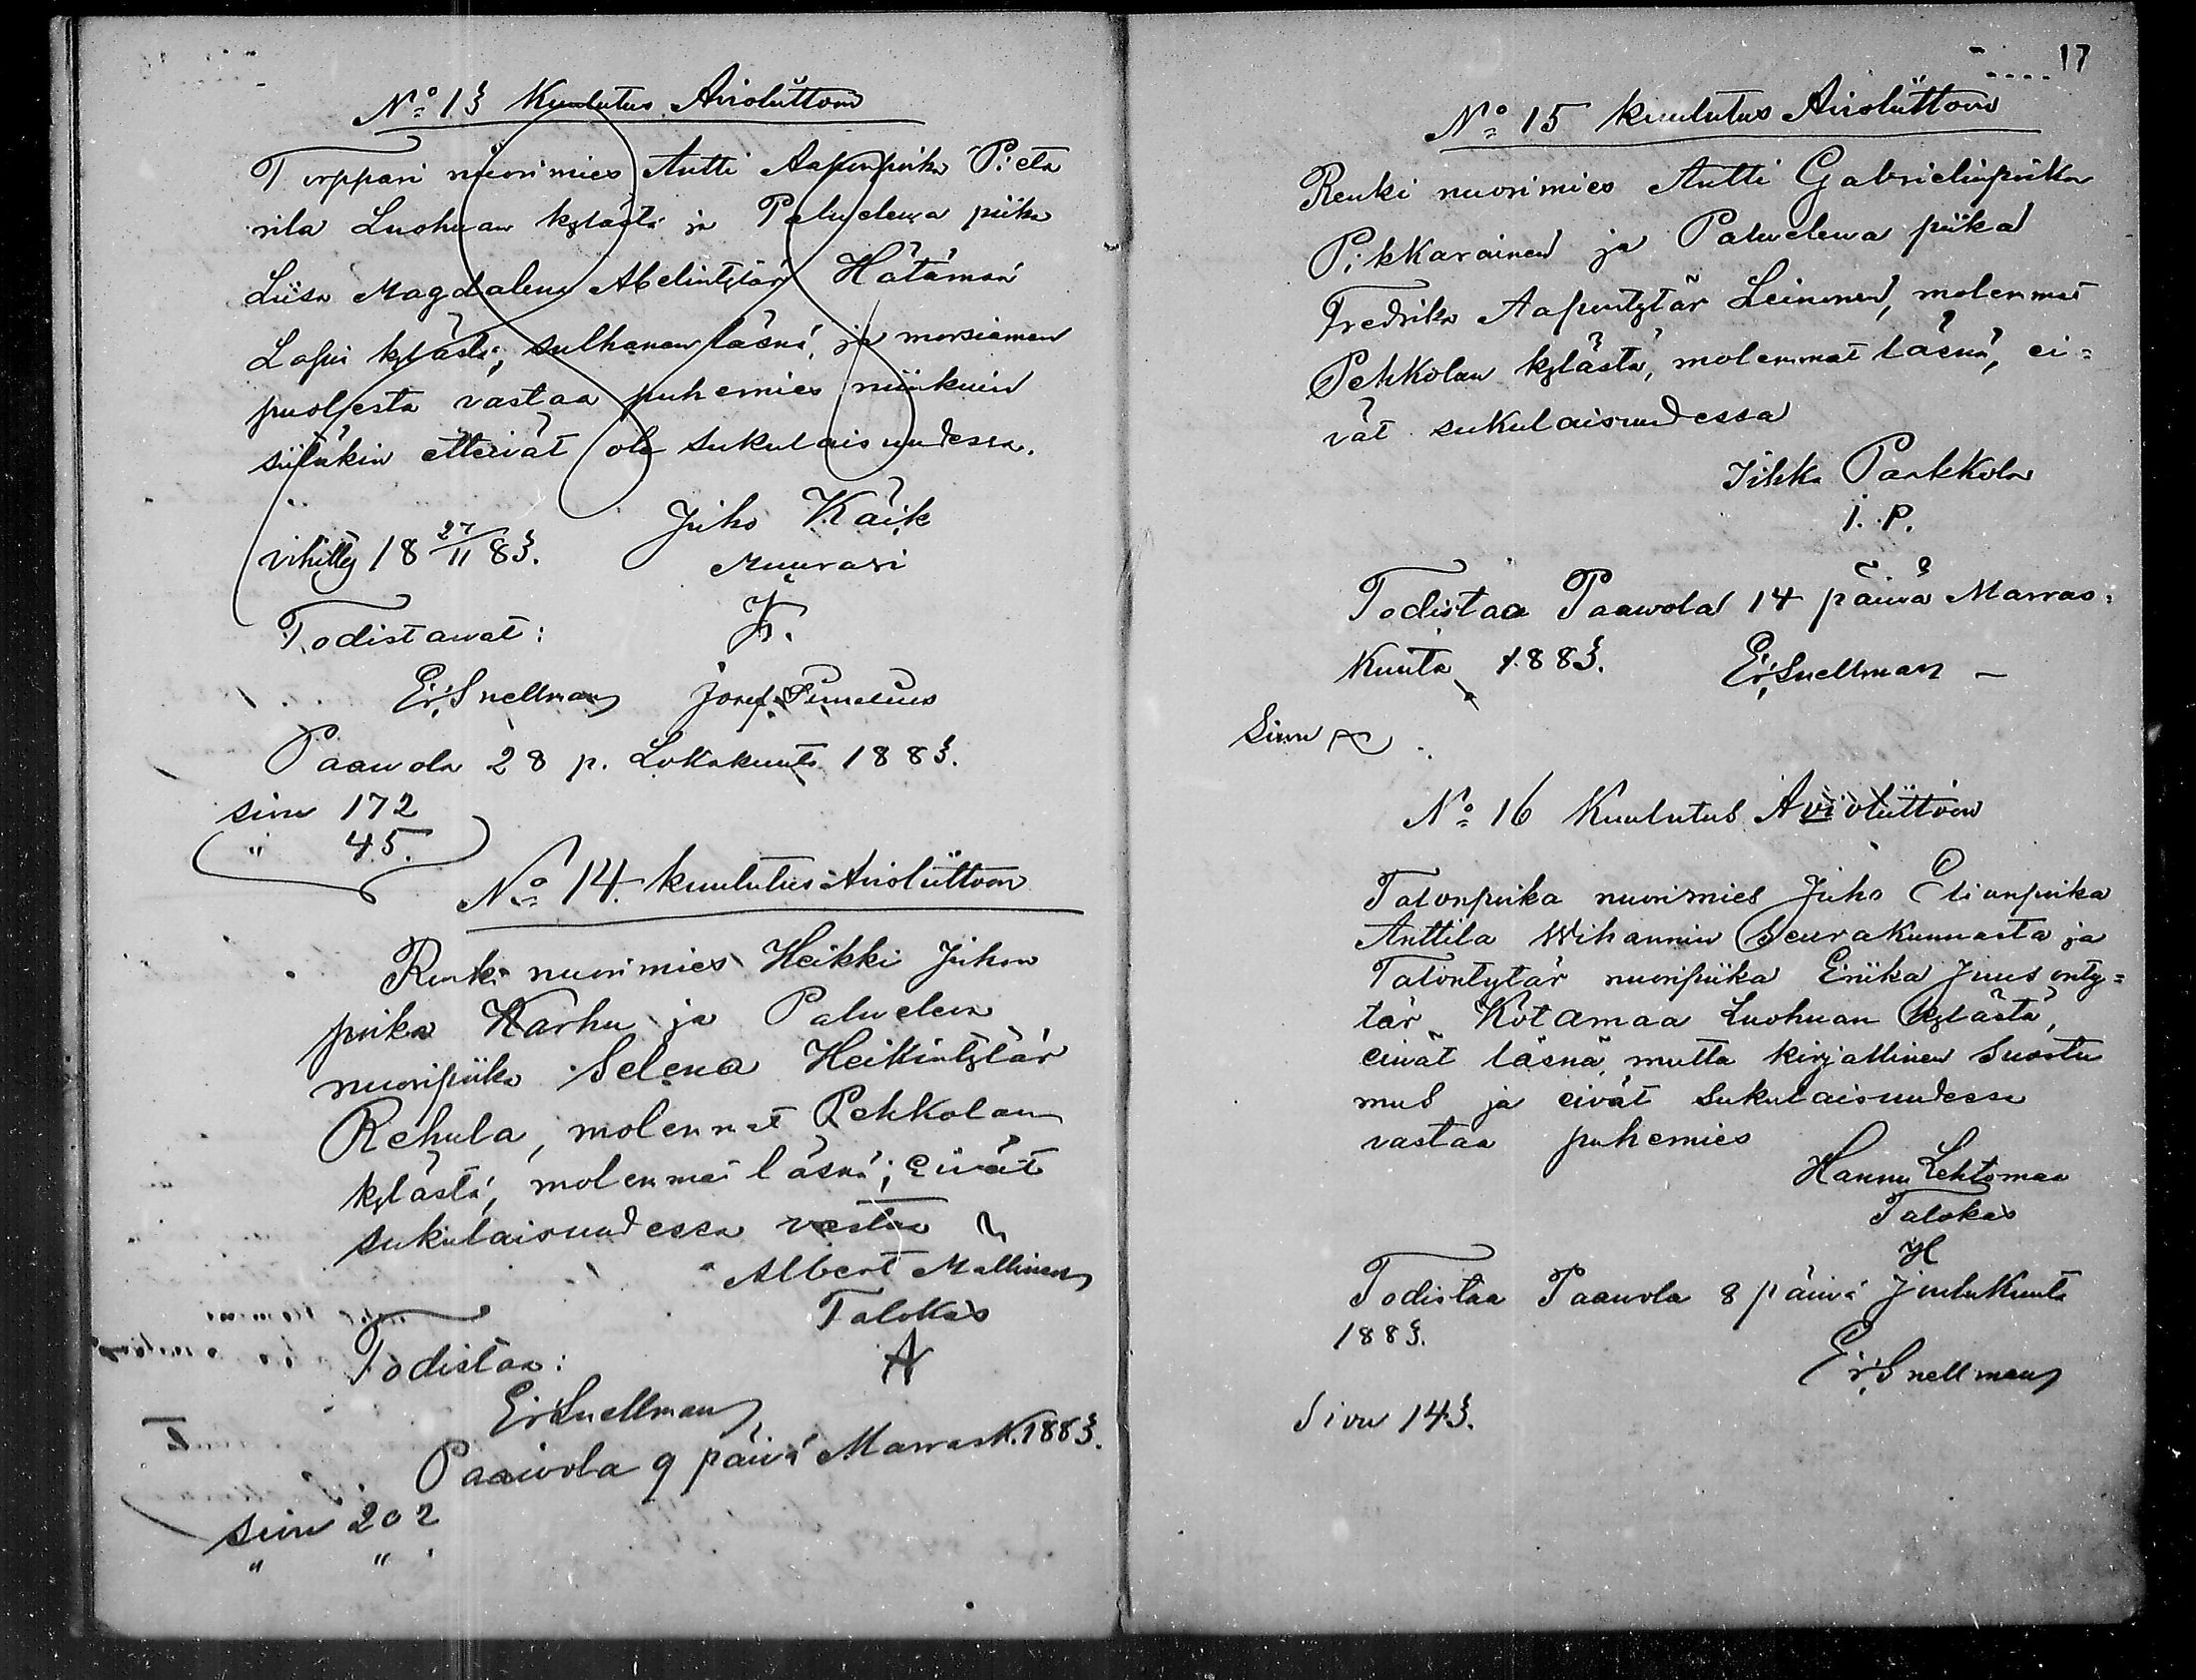 No 13 Kuulutus Avioliittoon
Torppari nuorimies Antti Aaponpoika Pieta
rila Luohuan kylästä ja Palveleva piika
Liisa Magdalena Abelintytär Hätämaa
Lapin kylästä, sulhanen läsnä, ja morsiamen
puolesta vastaa puhemies niinkuin
siitäkin etteivät ole sukulaisuudessa.
Juho Käik
vihitty 18 27/11 83.
Muurari
Todistavat:
Er. Snellman Josef
Paavola 28 p. Lokakuuta 1883.
sivu 172
" 45.
No 14. kuulutus Avioliittoon
Renki nuorimies Heikki Juhon
poika Karhu ja Palveleva
nuoripiika Selena Heikintytär
Rehula, molemmat Pehkolan
kylästä, molemmat läsnä; eivät
sukulaisuudessa vastaa
Albert Mallinen
Talokas
Todistaa:
A
Er. Snellman
Paavola 9 päivä Marrask. 1883.
sivu 202
" "
17
No 15 kuulutus Avioliittoon
Renki nuorimies Antti Gabrielinpoika
Pikkarainen ja Palveleva piika
Fredrika Aapontytär Leinonen, molemmat
Pehkolan kylästä, molemmat läsnä, ei=
vät sukulaisuudessa
Iikka Paakkola
I. P.
Todistaa Paavola 14 päivä Marras=
kuuta 1883. Er. Snellman —
Sivu
No 16 Kuulutus Avioliittoon
Talonpoika nuorimies Juho Elianpoika
Anttila Wihannin Seurakunnasta ja
Talontytär nuoripiika Eriika Juusonty=
tär Kotamaa Luohuan kylästä,
eivät läsnä, mutta kirjallinen suostu
mus ja eivät sukulaisuudessa
vastaa puhemies
Hannu Lehtomaa
Talokas
HL
Todistaa Paavola 8 päivä Joulukuuta
1883.
Er. Snellman
Sivu 143.